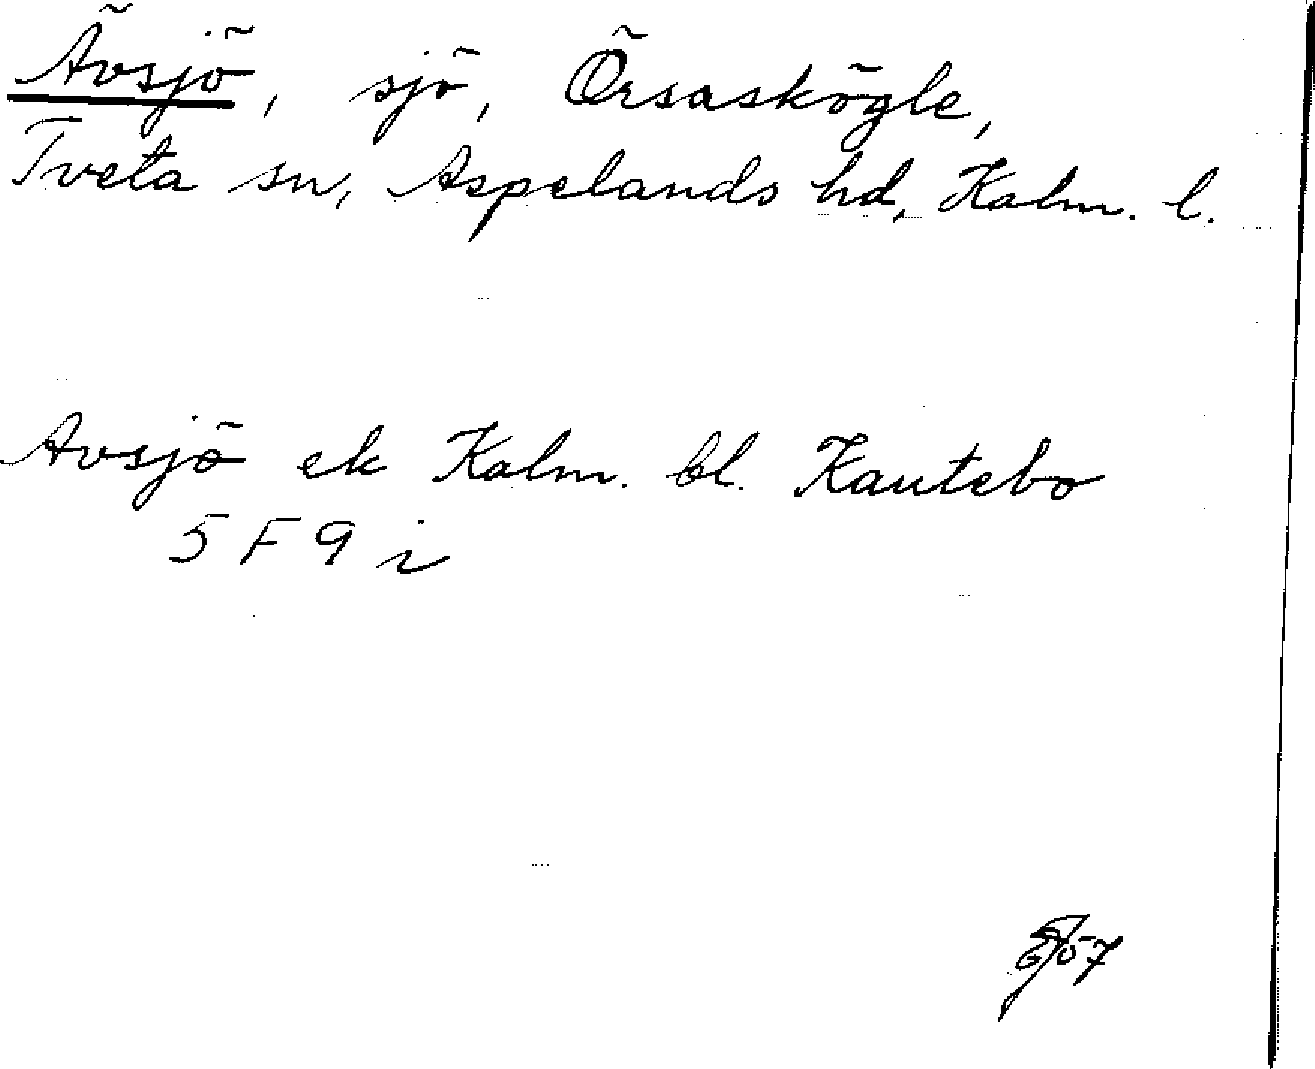 Ävsjö, sjö, Örsaskögle,
Tveta sn, Aspelands hd, Kalm. l.
Avsjö ek Kalm. bl. Kautebo
5 F 9 i